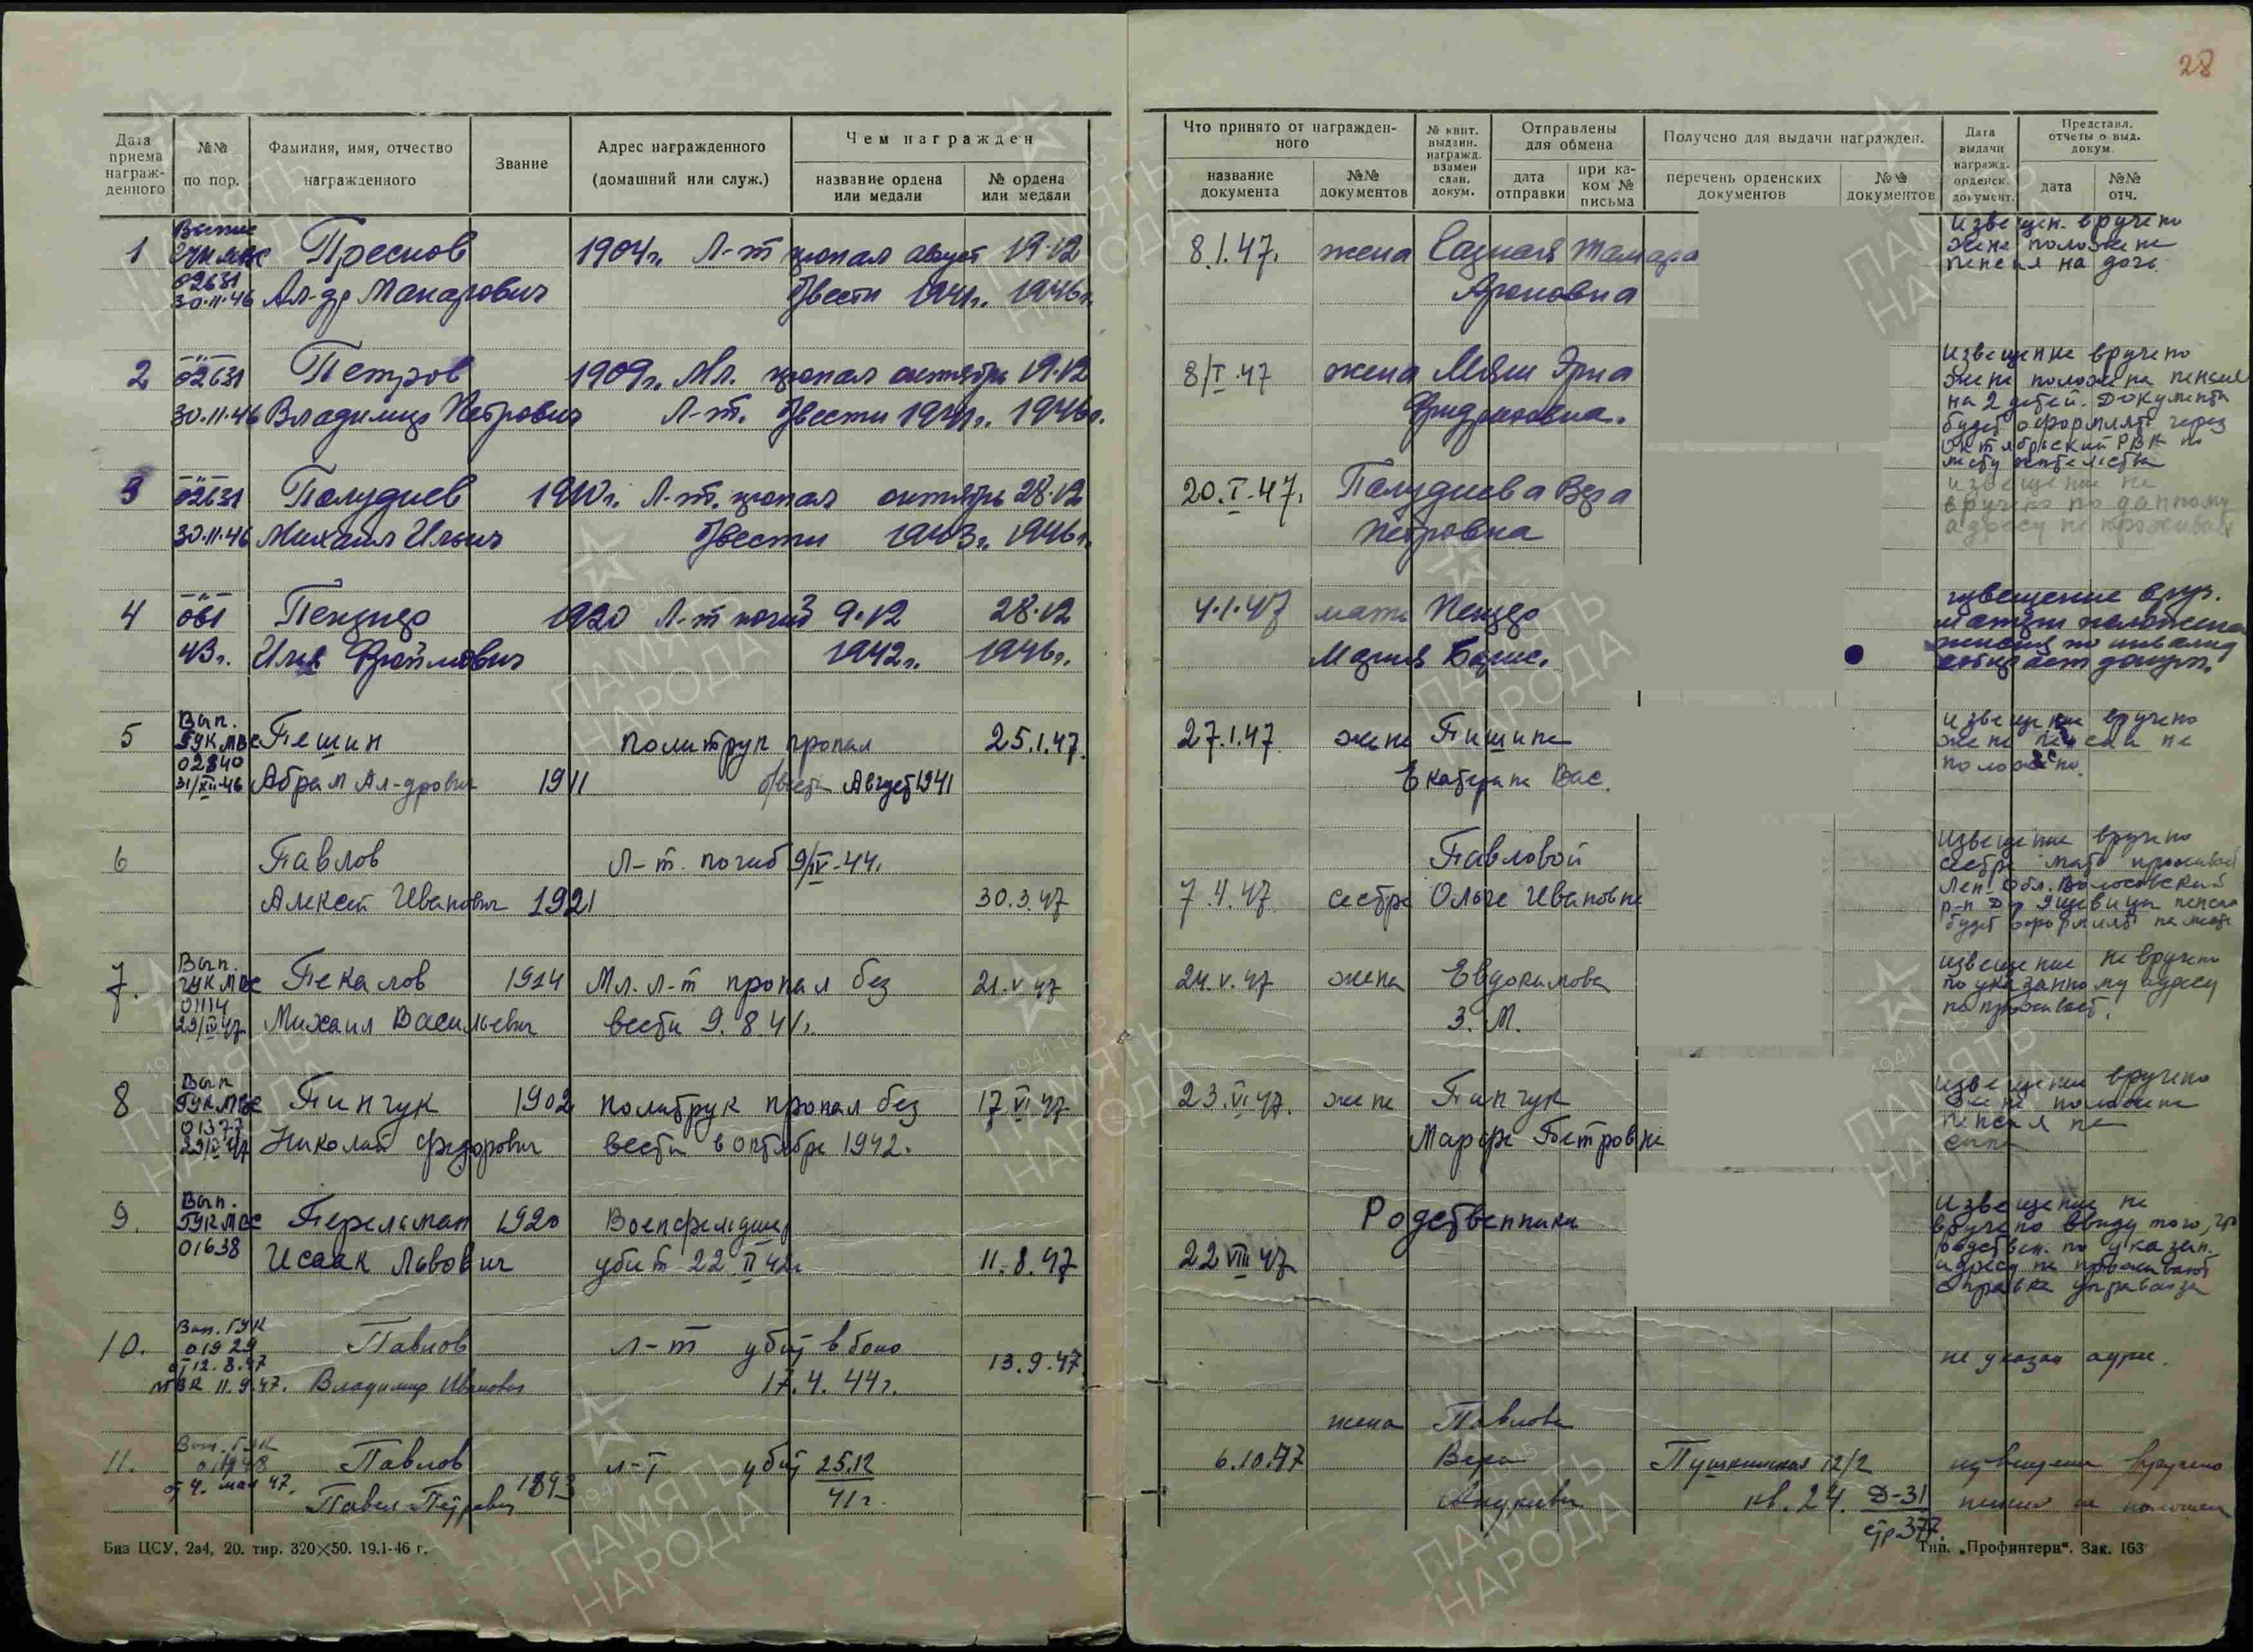 28
Дата приема награж-денного
№№ по пор.
Фамилия, имя, отчество награжденного
Звание
Адрес награжденного (домашний или служ.)
Чем награжден
название ордена или медали
№ ордена или медали
Что принято от награжден-ного
название документа
№№ документов
№ квит. выданн. награжд. взамен сдан. докум.
Отправлены для обмена
дата отправки
при ка-ком № письма
Получено для выдачи награжден.
перечень орденских документов
№№ документов
Дата выдачи награжд. орденск. документ.
Представл. отчеты о выд. докум.
дата
№№ отч.
1 Преснов 1904г. Л-т пропал август 19.12 8.1.47. жена Тамара Извещен. вручено
02631 жене положена
30.11.46 Ал-др Макарович б/вести 1941г. 1946г. Ароновна пенсия на дочь
2 02631 Петров 1909г. Мл. пропал октябрь 19.12 8/I.47 жена Эрна Извещение вручено
жене положена пенсия
30.11.46 Владимир Петрович Л-т. б/вести 1941г. 1946г. на 2 детей. Документы
будет оформлять через
Октябрьский РВК по
месту жительства
3 02631 Полуднев 1910г. Л-т. пропал октябрь 28.12 20.I.47. Полуднева Вера извещение не
вручено по данному
30.11.46 Михаил Ильич б/вести 1943г. 1946г. Петровна адресу не проживает
4 1920 Л-т погиб 9.12 28.12 4.1.47 мать извещение вруч.
матери положена
43г. Илья 1942г. 1946г. Мария Борис. пенсия по инвалид
собирает докум.
5 Вып. ГУК МВС Пешин политрук пропал 25.1.47. 27.1.47. жене Пишине Извещение вручено
02840 жене пенсии не
31/XII-46 Абрам Ал-дрович 1911 б/вести Август 1941 Екатерине Вас. положено.
6 Павлов Л-т. погиб 9/IV-44. Павловой Извещение вручено
сестре мать проживает
Алексей Иванович 1921 30.3.47 7.4.47 сестре Ольге Ивановне Лен. Обл. Волосовский
р-н Дер пенсию
будет оформлять
7. Вып. ГУК МВС Пекалов 1914 Мл. л-т пропал без 21.V.47 24.V.47 жена Евдокимова извещение не вручено
01114 по указанному адресу
29/IV 47 Михаил Васильевич вести 9.8.41г. З. М. не проживает.
8 Вып ГУК МВС Пинчук 1902 политрук пропал без 17.VI.47 23.VI.47. жене Пинчук Извещение вручено
01377 жене положена
Николай Федорович вести в октябре 1942. Марфе Петровне пенсия на
сына
9. Вып. ГУК МВС Перельман 1920 Военфельдшер Родственники Извещение не
01638 вручено ввиду того, что
Исаак Львович убит 22.II 42г 11.8.47 22 VIII 47 родствен. по указан.
адресу не проживают
справка управдома
10. Вып. ГУК
01929 Павлов л-т убит в бою 13.9.47 не указан адрес.
от 12.8.47
МВК 11.9.47. Владимир Иванович 17.4.44г.
жена Павлова
11. Вып. ГУК Павлов л-т убит 25.12 6.10.47 Вера Пушкинская 12/2 извещение вручено
от 4. мая 47. Павел Петрович 1893 41г. кв. 24. Д-31 пенсия не положена
стр. 377.
Биз ЦСУ, 2а4, 20. тир. 320×50. 19.1-46 г.
Тип. „Профинтерн". Зак. 163
ПАМЯТЬ НАРОДА
1941-1945